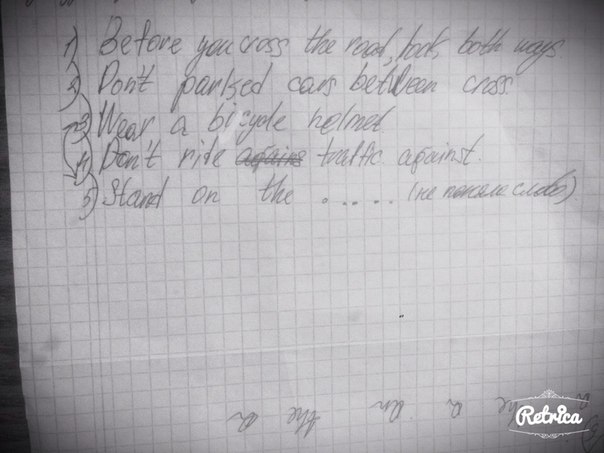 1) Before you cross the road, look both ways.
2) Don't parked cars between cross.
3) Wear a bicycle helmet
4) Don't rite traffic against.
5) Stand on the ..... (не поняли слово)
the a an the a
Retrica